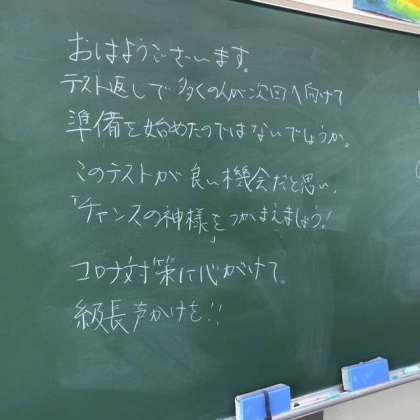 おはようございます。
テスト返しで多くの人が次回へ向けて
準備を始めたのではないでしょうか。
このテストが良い機会だと思い、
「チャンスの神様をつかまえましょう!」
コロナ対策に心がけて。
級長声かけを!!